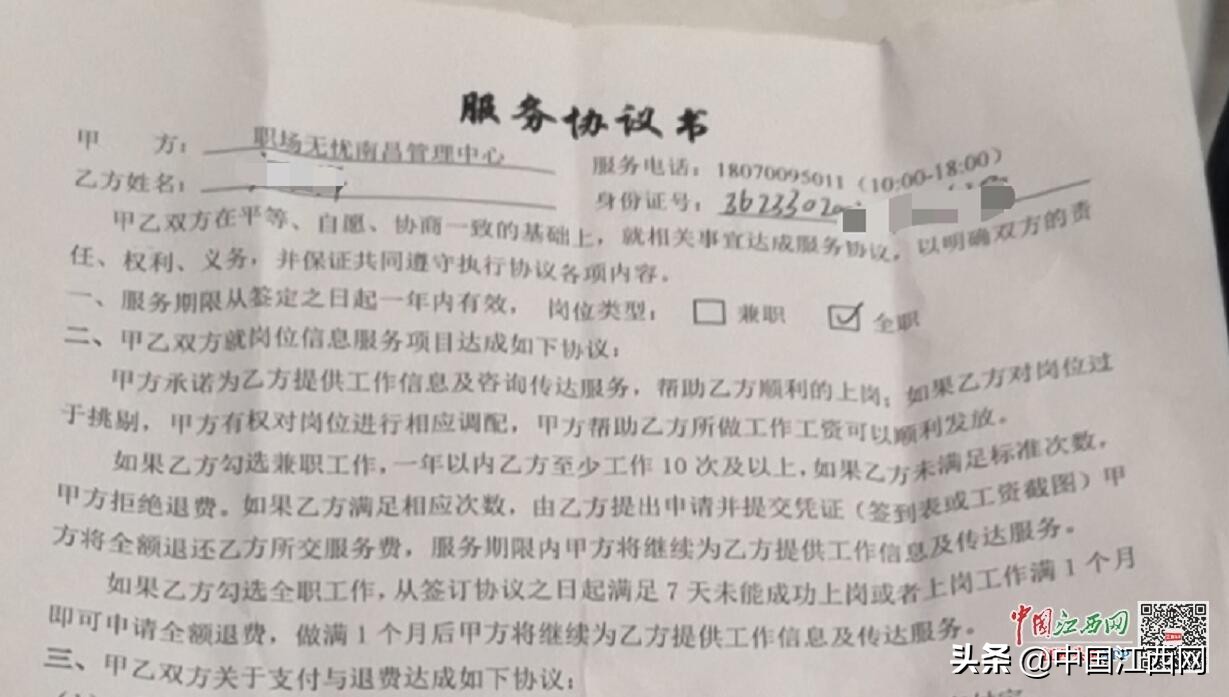 服务协议书
甲 方：职场无忧南昌管理中心 服务电话：18070095011（10:00-18:00）
乙方姓名： 身份证号：3623302
甲乙双方在平等、自愿、协商一致的基础上，就相关事宜达成服务协议，以明确双方的责
任、权利、义务，并保证共同遵守执行协议各项内容。
一、服务期限从签定之日起一年内有效， 岗位类型： 兼职 全职
二、甲乙双方就岗位信息服务项目达成如下协议：
甲方承诺为乙方提供工作信息及咨询传达服务，帮助乙方顺利的上岗；如果乙方对岗位过
于挑剔，甲方有权对岗位进行相应调配，甲方帮助乙方所做工作工资可以顺利发放。
如果乙方勾选兼职工作，一年以内乙方至少工作10次及以上，如果乙方未满足标准次数，
甲方拒绝退费。如果乙方满足相应次数，由乙方提出申请并提交凭证（签到表或工资截图）甲
方将全额退还乙方所交服务费，服务期限内甲方将继续为乙方提供工作信息及传达服务。
如果乙方勾选全职工作，从签订协议之日起满足7天未能成功上岗或者上岗工作满1个月
即可申请全额退费，做满1个月后甲方将继续为乙方提供工作信息及传达服务。
三、甲乙双方关于支付与退费达成如下协议：
中国江西网
头条 @中国江西网